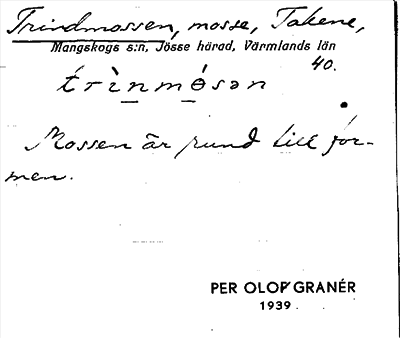 Trindmossen, mosse, Takene,
Mangskogs s:n, Jösse härad, Värmlands län
40.
trìnmósən
Mossen är rund till for-
men.
PER OLOF GRANÉR
1939.